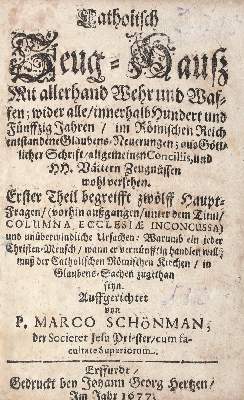 Catholisch
Zeug-Hauß
Mit allerhand Wehr und Waf-
fen; wider alle / innerhalb Hundert und
Fünffzig Jahren / im Römischen Reich
entstandene Glaubens-Neuerungen; aus Gött-
licher Schrifft / allgemeinen Conciliis, und
HH. Vättern Zeugnüssen
wohl versehen.
Erster Theil begreifft zwölff Haupt-
Fragen / (vorhin außgangen / unter dem Titul /
COLUMNA ECCLESIÆ INCONCUSSA)
und unüberwindliche Ursachen: Warumb ein jeder
Christen-Mensch / wann er vernünfftig handlen will;
muß der Catholischen Römischen Kirchen / in
Glaubens-Sachen zugethan
seyn.
Auffgerichtet
von
P. MARCO SCHÖNMAN,
der Societet Jesu Priester / cum fa-
cultate Superiorum.
Erffurdt /
Gedruckt bey Johann Georg Hertzen /
Im Jahr 1677.